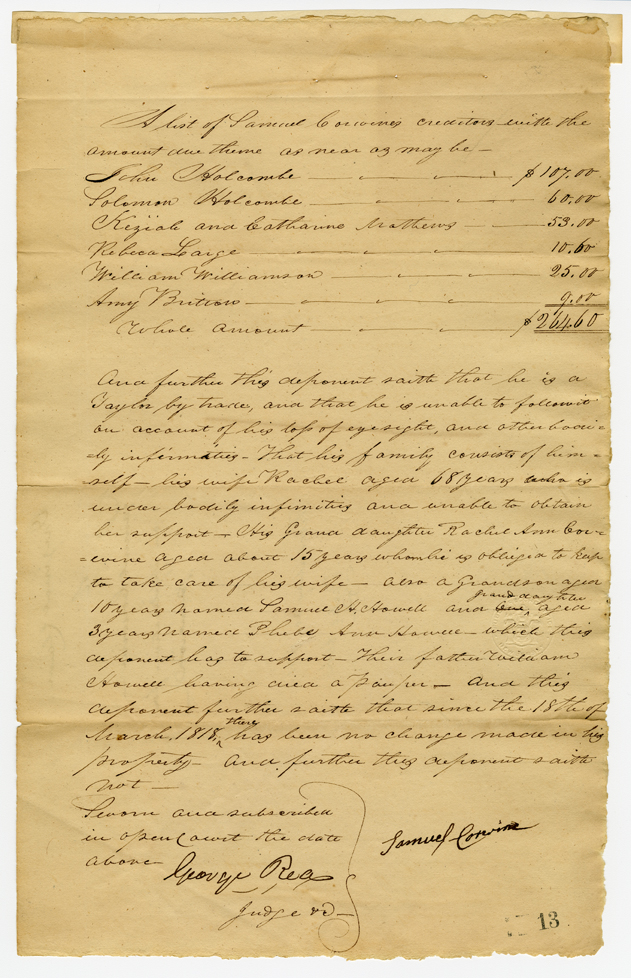 A list of Samuel Corwines creditors with the
amount due theme as near as may be —
John Holcombe — " — " — " — $107.00
Solomon Holcombe — " — " — " — 60.00
Keziah and Catharine Mathews — " — 53.00
Rebeca Large — " — " — " — 10.60
William Williamson — " — " — " — 25.00
Amy Britton — " — " — " — 9.00
Whole amount — " — " — $264.60
And further this deponent saith that he is a
Taylor by trade, and that he is unable to follow it
on account of his loss of eyesight, and other bodi-
-ly infirmities — That his family consists of him-
-self — his wife Rachel aged 68 years who is
under bodily infimities and unable to obtain
her support — His Grand daughter Rachel Ann Cor=
=wine aged about 15 years whom he is obliged to keep
to take care of his wife — also a Grandson aged
10 years named Samuel H. Howell and grand daughter aged
3 years named Phebe Ann Howell — which this
deponent has to support — Their father William
Howell having died a pauper — And this
deponent further saith that since the 18th of
March, 1818, there has been no change made in his
property — And further this deponent saith
not —
Sworn and subscribed
in open Court the date
above
Samuel Corwine
George Rea
Judge &c —
13